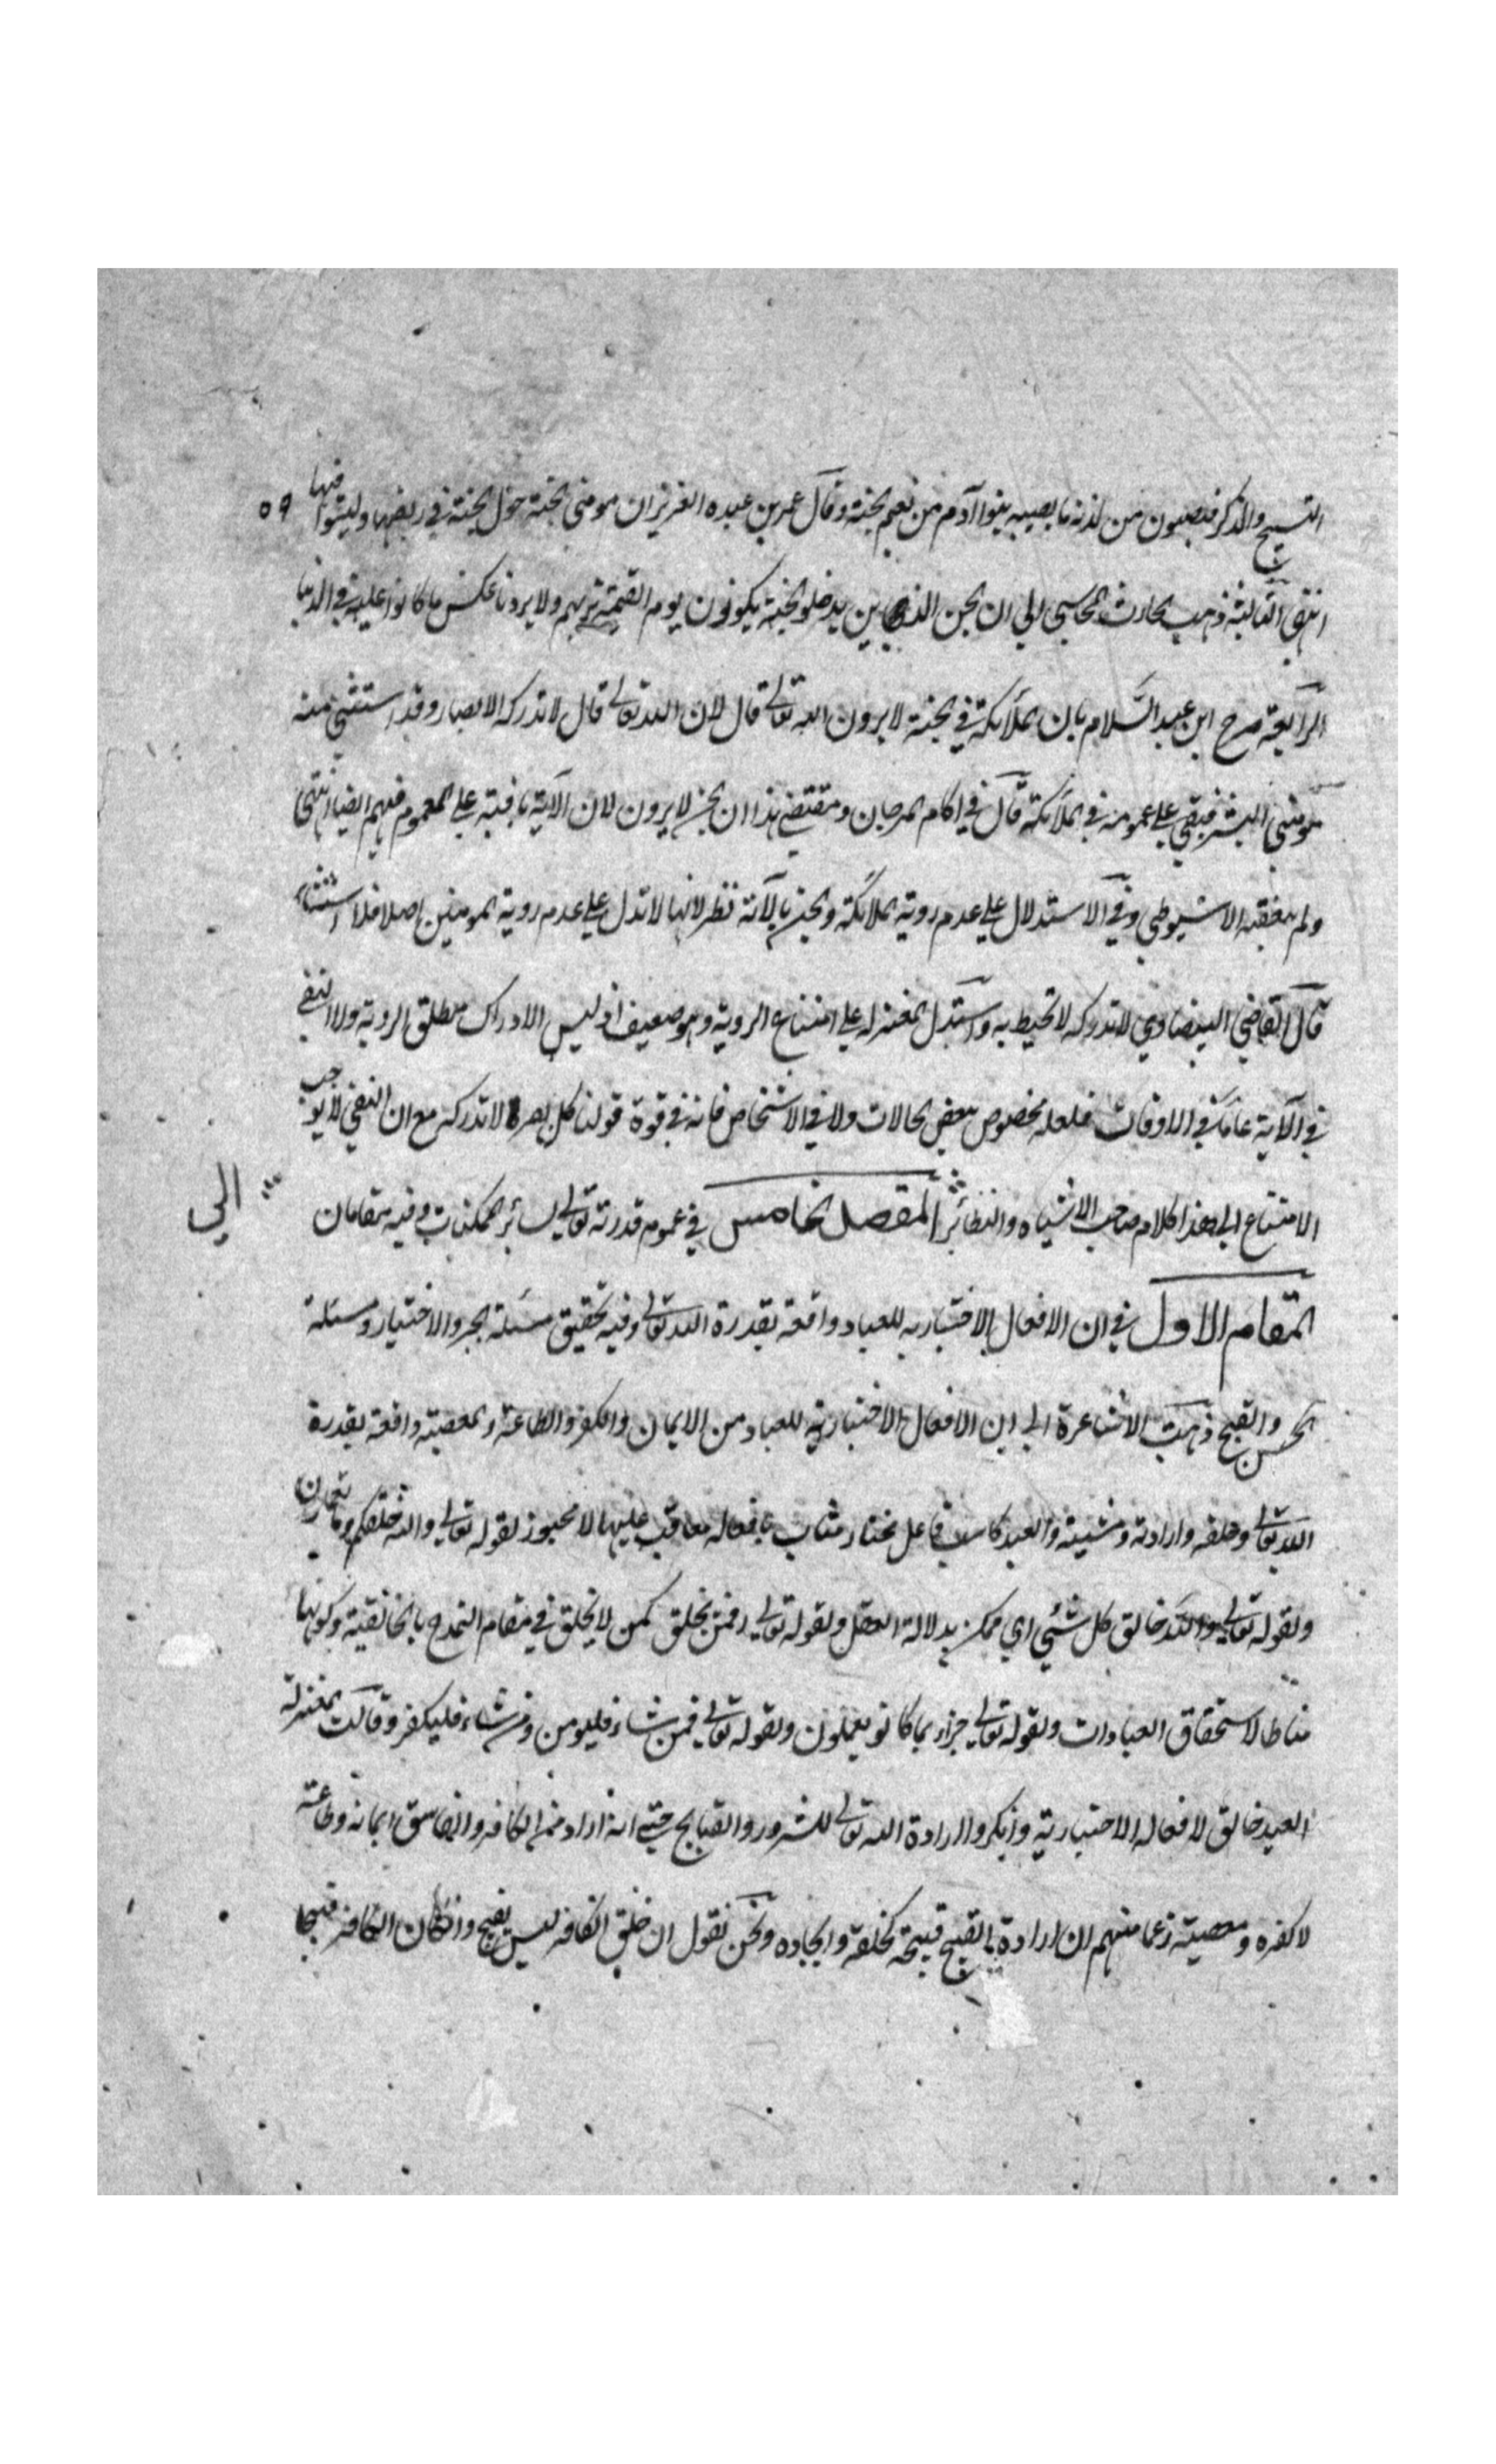 التسبيح والذكر فيصيبون من لذته ما يصيبه بنوا آدم من نعيم الجنة وقال عمر بن عبده العزيز ان مومنى الجنة حول الجنة في ربضها وليسوا فيها ٥٩
انتهى الثالثة ذهب الحارث المحاسبى الي ان الجن الذين يدخلو الجنة يكونون يوم القيمة نريهم ولا يرونا عكس ما كانوا عليه في الدنيا
الرابعة صرح ابن عبد السلام بان الملائكة في الجنة لا يرون الله تعالى قال لان الله تعالى قال لا تدركه الابصار وقد استثنى منه
مومنى البشر فبقي على عمومه في الملائكة قال في اكام المرجان ومقتضى هذا ان الجن لا يرون لان الآية باقية على العموم فيهم ايضا انتهى
ولم يتعقبه الاسيوطي وفي الاستدلال على عدم روية الملائكة والجن بالآية نظر لانها لا تدل على عدم روية المومنين اصلا فلا استثناء
قال القاضي البيضاوي لا تدركه لا تحيط به واستدل المعتزله على امتناع الروية وهو ضعيف اذ ليس الادراك مطلق الروية ولا النفى
في الآية عاما في الاوقات فلعله مخصوص ببعض الحالات ولا في الاشخاص فانه في قوة قولنا كل بصر لا تدركه مع ان النفي لا يوجب
الامتناع الى هذا كلام صاحب الاشباه والنظائر المقصد الخامس في عموم قدرته تعالى لسائر الممكنات وفيه مقامان
الي
المقام الاول في ان الافعال الاختياريه للعباد واقعة بقدرة الله تعالى وفيه تحقيق مسئلة الجبر والاختيار ومسئلة
الحسن والقبح ذهبت الاشاعرة الى ان الافعال الاختيارية للعباد من الايمان والكفر والطاعة والمعصية واقعة بقدرة
الله تعالى وخلقه وارادته ومشيته والعبد كاسب فاعل مختار مثاب بافعاله معاقب عليها لا مجبور لقوله تعالى والله خلقكم وما تعملون
ولقوله تعالى والله خالق كل شئي اي ممكن بدلالة العقل ولقوله تعالى افمن يخلق كمن لا يخلق في مقام التمدح بالخالقية وكونها
مناطا لاستحقاق العبادات ولقوله تعالى جزاء بما كانو يعملون ولقوله تعالى فمن شاء فليومن ومن شاء فليكفر وقالت المعتزلة
العبد خالق لافعاله الاختيارية وانكروا ارادة الله تعالى للشرور والقبايح حتى انه اراد من الكافر والفاسق ايمانه وطاعته
لا كفره ومعصيته زعما منهم ان ارادة القبيح قبيحة كخلقه وايجاده ونحن نقول ان خلق الكافر ليس بقبيح وان كان الكافر قبيحا